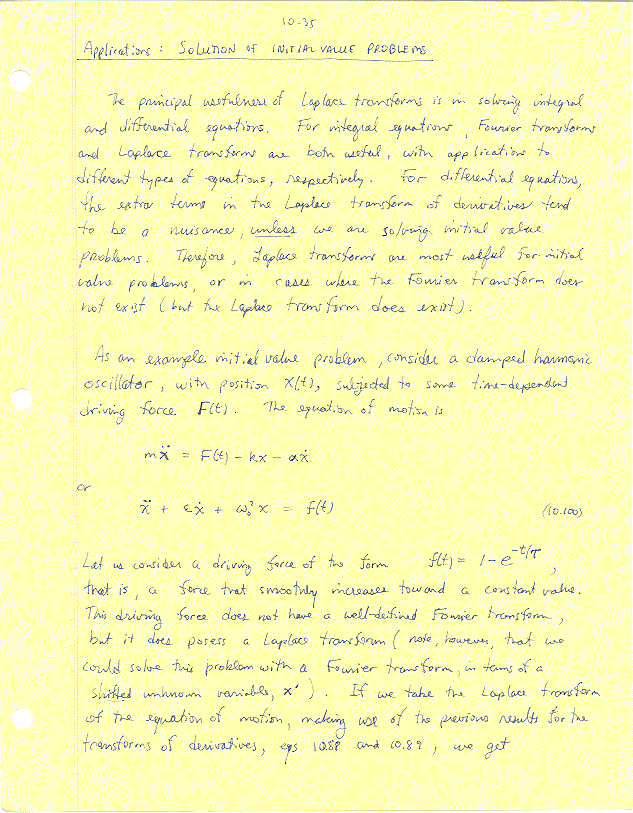 10-35
Applications: SOLUTION OF INITIAL VALUE PROBLEMS
The principal usefulness of Laplace transforms is in solving integral
and differential equations. For integral equations, Fourier transforms
and Laplace transforms are both useful, with application to
different types of equations, respectively. For differential equations,
the extra terms in the Laplace transform of derivatives tend
to be a nuisance, unless we are solving initial value
problems. Therefore, Laplace transforms are most useful for initial
value problems, or in cases where the Fourier transform does
not exist (but the Laplace transform does exist).
As an example initial value problem, consider a damped harmonic
oscillator, with position X(t), subjected to some time-dependent
driving force F(t). The equation of motion is
mẍ = F(t) - kx - αẋ
or
ẍ + εẋ + ω₀² x = f(t) (10.100)
Let us consider a driving force of the form f(t) = 1 - e^{-t/τ},
that is, a force that smoothly increases toward a constant value.
This driving force does not have a well-defined Fourier transform,
but it does posess a Laplace transform (note, however, that we
could solve this problem with a Fourier transform, in terms of a
shifted unknown variable, x'). If we take the Laplace transform
of the equation of motion, making use of the previous results for the
transforms of derivatives, eqs 10.88 and 10.89, we get